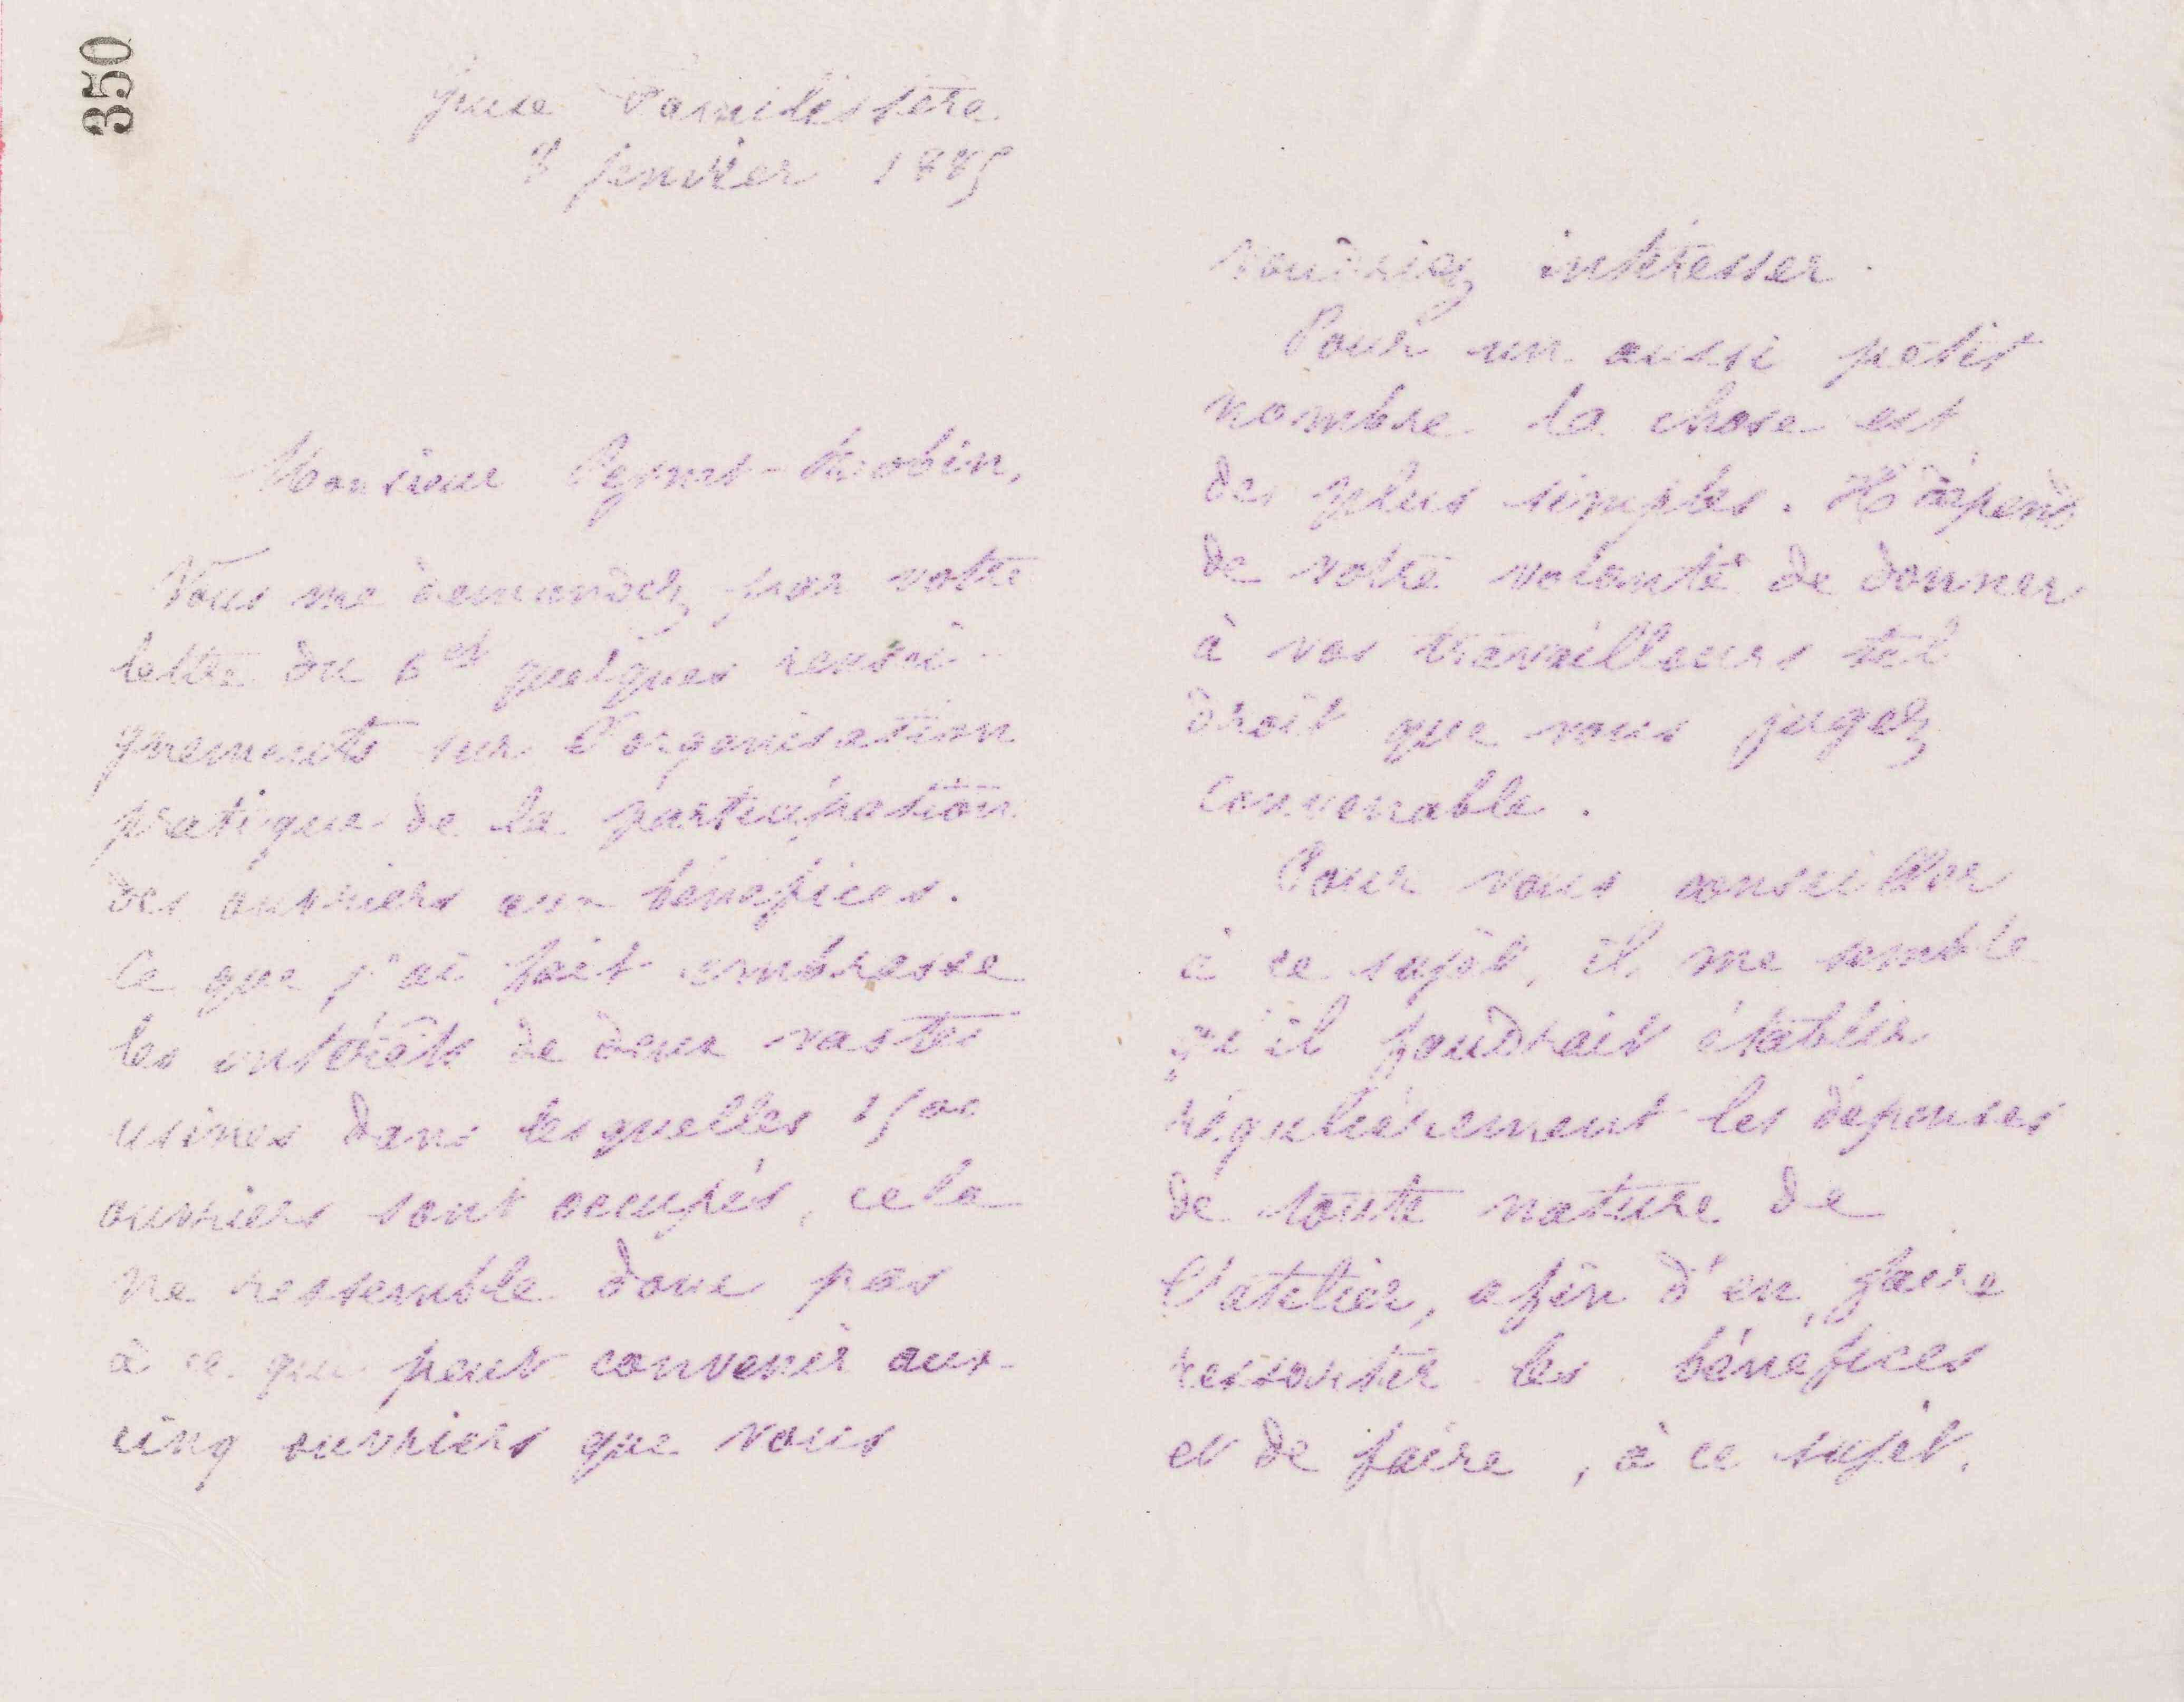 350
Guise Familistère
8 janvier 1885
Monsieur
Vous me demandez par votre
lettre du 6 et quelques rensei-
gnements sur l'organisation
pratique de la participation
des ouvriers aux bénéfices.
Ce que j'ai fait embrasse
les intérêts de deux vastes
usines dans lesquelles 1500
ouvriers sont occupés, cela
ne ressemble donc pas
à ce qui peut convenir aux
cinq ouvriers que vous
voudriez intéresser.
Pour un aussi petit
nombre la chose est
des plus simples. Il dépend
de votre volonté de donner
à vos travailleurs tel
droit que vous jugez
convenable.
Pour vous conseiller
à ce sujet, il me semble
qu'il faudrait établir
régulièrement les dépenses
de toute nature de
l'atelier, afin d'en faire
ressortir les bénéfices
et de faire, à ce sujet,